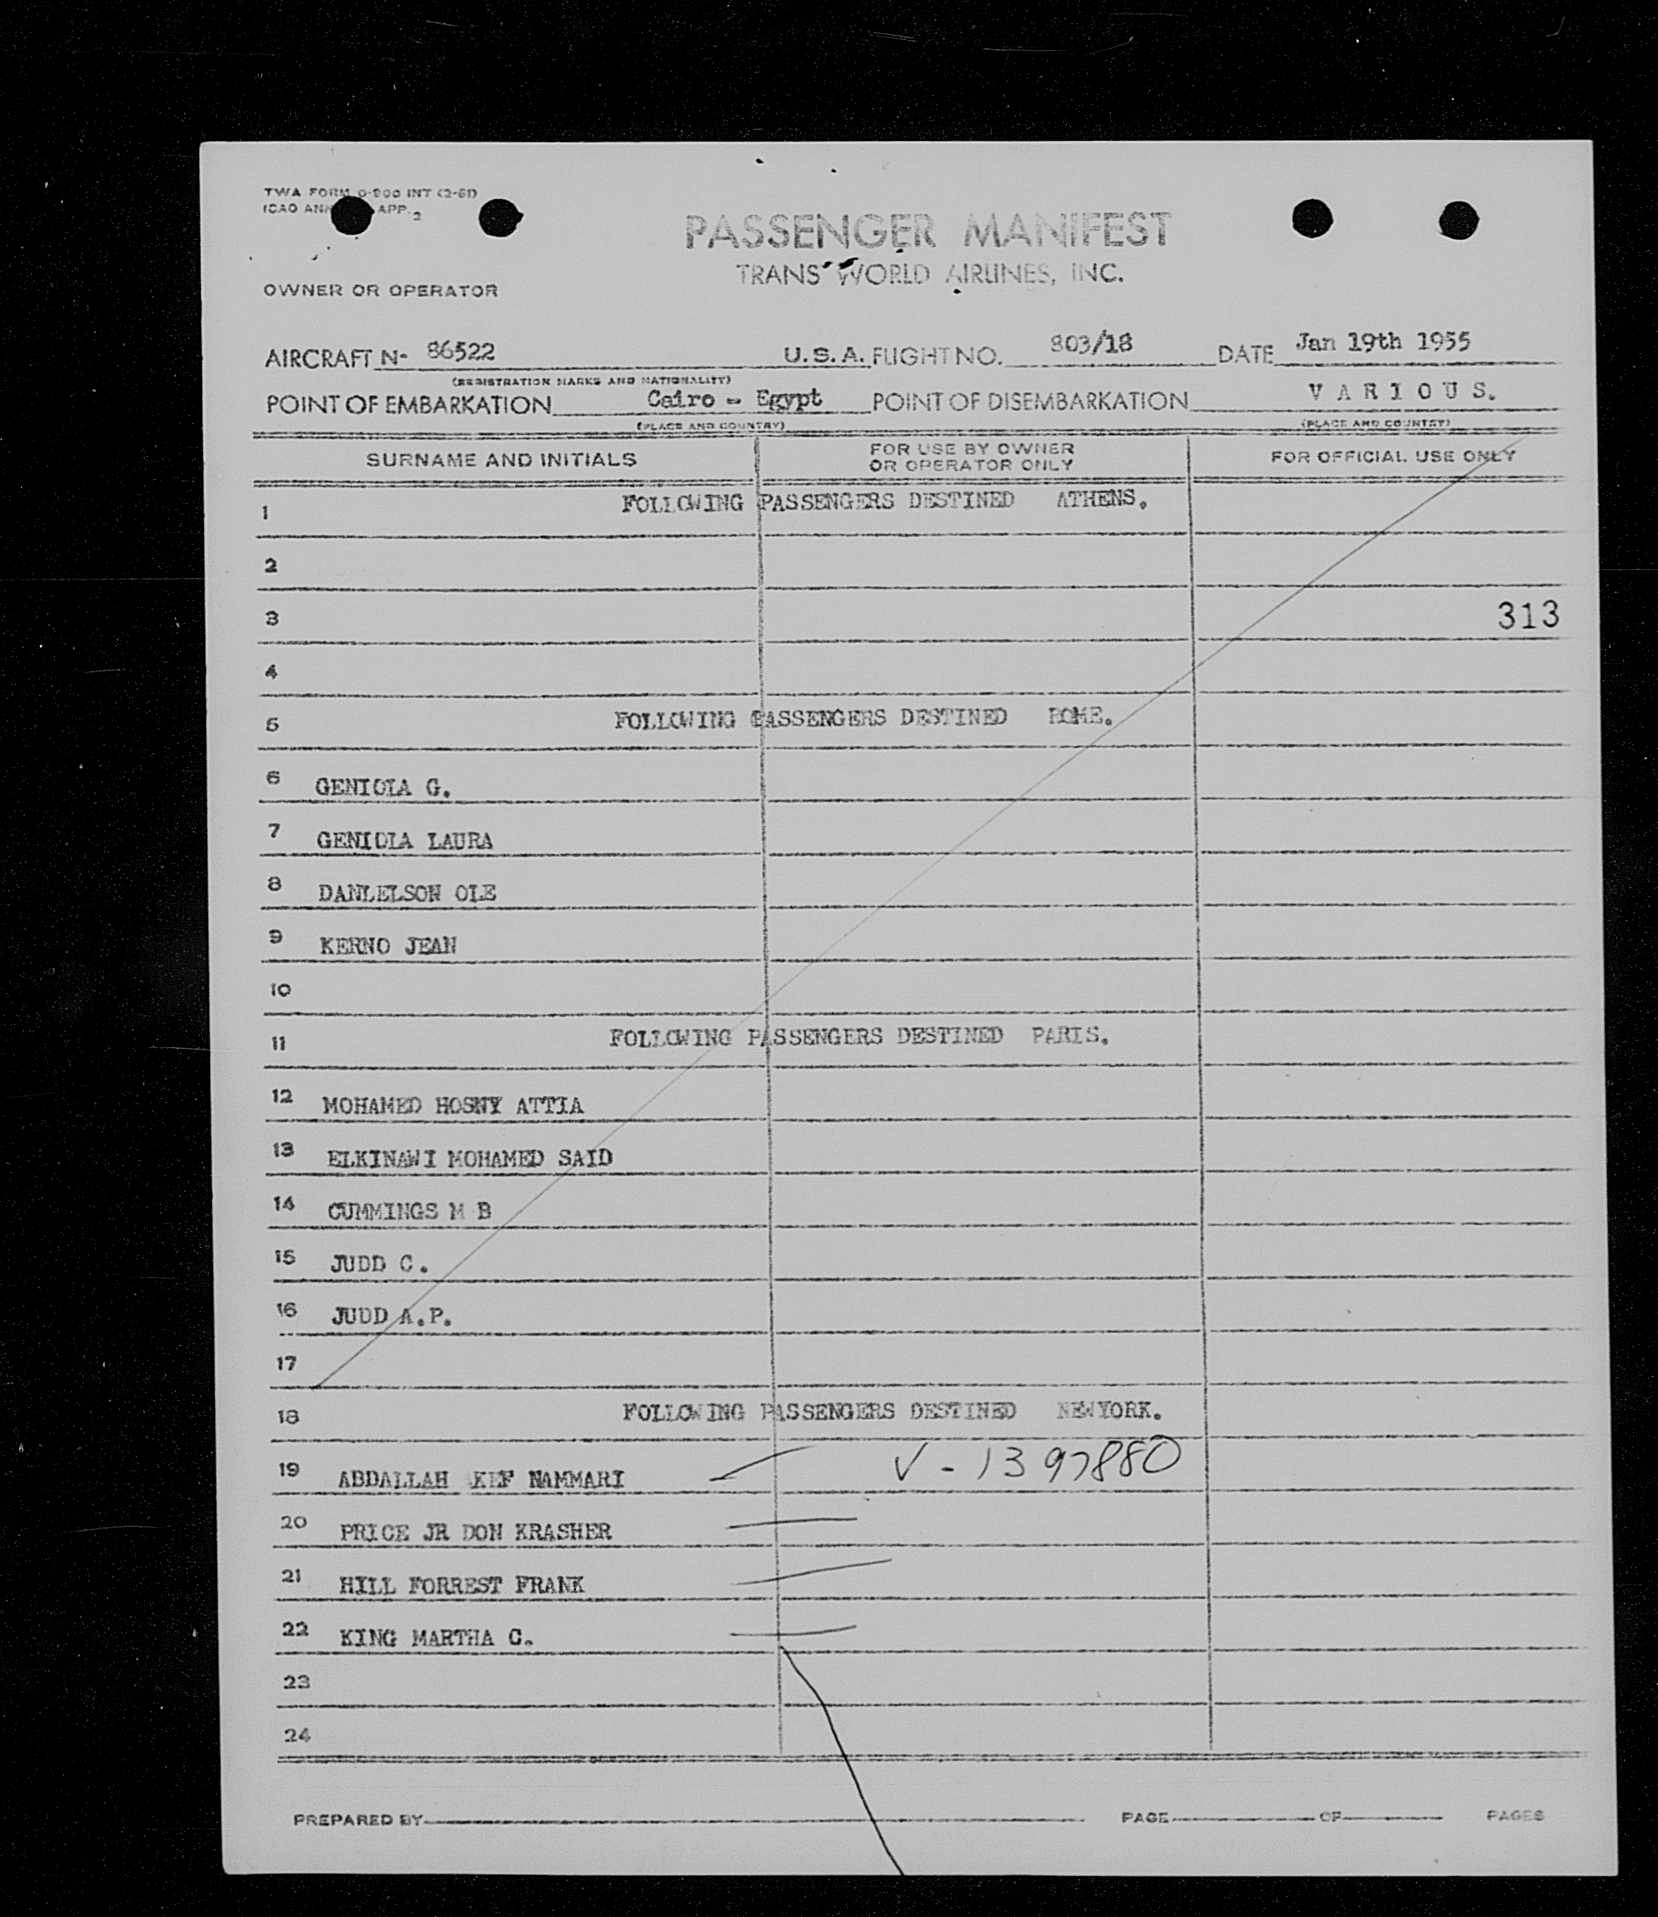 TWA FORM O-200 INT (2-51)
ICAO APP. 2
PASSENGER MANIFEST
TRANS WORLD AIRLINES, INC.
OWNER OR OPERATOR
AIRCRAFT No 86522 U.S.A. FLIGHT NO. 803/18 DATE Jan 19th 1955
(REGISTRATION MARKS AND NATIONALITY)
POINT OF EMBARKATION Cairo - Egypt POINT OF DISEMBARKATION V A R I O U S.
(PLACE AND COUNTRY) (PLACE AND COUNTRY)
SURNAME AND INITIALS FOR USE BY OWNER OR OPERATOR ONLY FOR OFFICIAL USE ONLY
1 FOLLOWING PASSENGERS DESTINED ATHENS.
2
3 313
4
5 FOLLOWING PASSENGERS DESTINED ROME.
6 GENIOLA G.
7 GENIOLA LAURA
8 DANLELSON OLE
9 KERNO JEAN
10
11 FOLLOWING PASSENGERS DESTINED PARIS.
12 MOHAMED HOSNY ATTIA
13 ELKINAWI MOHAMED SAID
14 CUMMINGS M B
15 JUDD C.
16 JUDD A.P.
17
18 FOLLOWING PASSENGERS DESTINED NEWYORK.
19 ABDALLAH NAMMARI V - 1397880
20 PRICE JR DON KRASHER
21 HILL FORREST FRANK
22 KING MARTHA C.
23
24
PREPARED BY PAGE OF PAGES